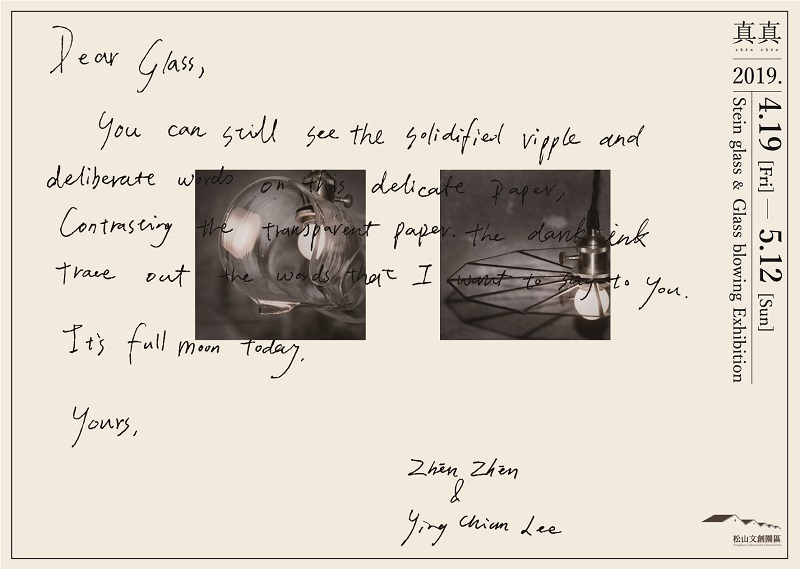 Dear Glass,
You can still see the solidified ripple and
deliberate words on this delicate paper,
Contrasting the transparent paper. the dark ink
trace out the words that I want to say to you.
It's full moon today.
Yours,
Zhēn Zhēn
&
Ying Chian Lee
真真
zhēn zhēn
2019.
4.19 [Fri] — 5.12 [Sun]
Stein glass & Glass blowing Exhibition
松山文創園區